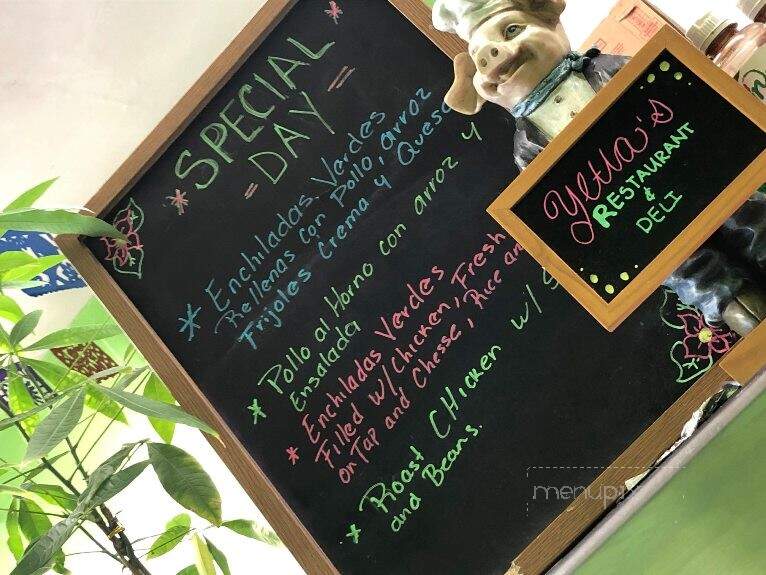 SPECIAL
= DAY =
* Enchiladas Verdes
Rellenas con Pollo, arroz
Frijoles Crema y Queso
* Pollo al Horno con arroz y
Ensalada
* Enchiladas Verdes
Filled w/Chicken, Fresh
on Tap and Chesse, Rice an
* Roast CHicken w/
and Beans.
Yetta's
RESTAURANT
&
DELI
menupix